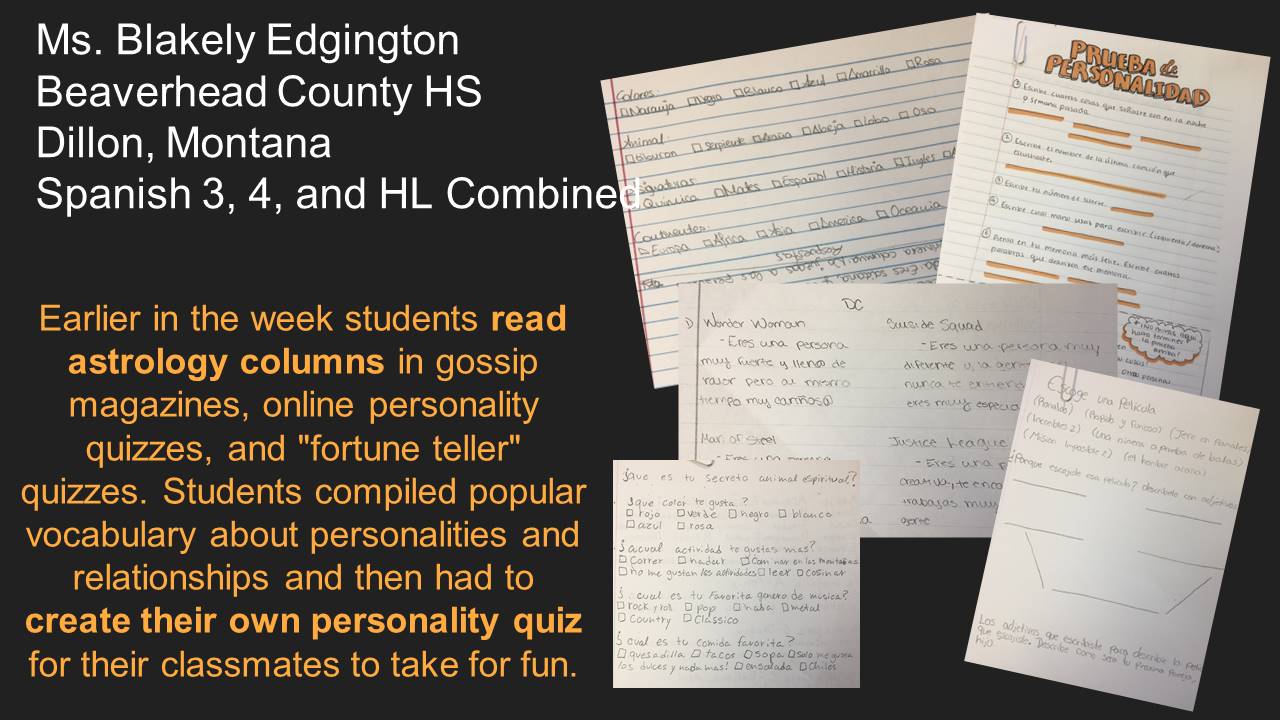 Ms. Blakely Edgington
Beaverhead County HS
Dillon, Montana
Spanish 3, 4, and HL Combined
Earlier in the week students read
astrology columns in gossip
magazines, online personality
quizzes, and "fortune teller"
quizzes. Students compiled popular
vocabulary about personalities and
relationships and then had to
create their own personality quiz
for their classmates to take for fun.
Colores:
Naranja Negro Blanco Azul Amarillo Rosa
Animal:
Tiburon Serpiente Araña Abeja Lobo Oso
Quimica Mates Español Historia Ingles
Continentes:
Europa Africa Asia America Oceania
PRUEBA de
PERSONALIDAD
① Escribe cuatro cosas que
y semana pasada.
② Escribe el nombre de la última canción que
escuchaste.
③ Escribe tu número de suerte.
④ Escribe cual mano usas para escribir. (izquierda/derecha)
⑤ Piensa en tu memoria más feliz. Escribe cuatro
palabras que
DC
1) Wonder Woman
- Eres una persona
muy fuerte y lleno de
valor pero al mismo
tiempo muy cariños@
Man of Steel
Suiside Squad
- Eres una persona muy
diferente y la
nunca te
eres muy especia
Justice League
- Eres una
creativ
trabajas muy
Escoge una película
(Rapido y furioso)
(una niñera a prueba de balas)
(el hombre araña)
¿Porque escojiste esa película? describelo con adjetivos
Los adjetivos que escribiste para describir la
que escojiste. Describe como sera tu proxima pareja,
hijo.
¿que es tu secreto animal espiritual?
¿que color te gusta?
rojo verde negro blanco
azul rosa
¿acual actividad te gustas mas?
correr nadar caminar en las montañas
no me gustan las actividades leer cosinar
¿cual es tu favorita genero de musica?
rock y rol pop metal
country clasico
¿cual es tu comida favorita?
quesadilla tacos sopa solo me gusta
los dulces y nada mas! ensalada chiles